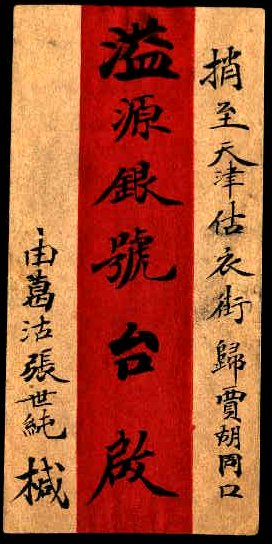 捎至天津估衣街歸賈胡同口
溢源銀號台啟
由葛沽張世純槭